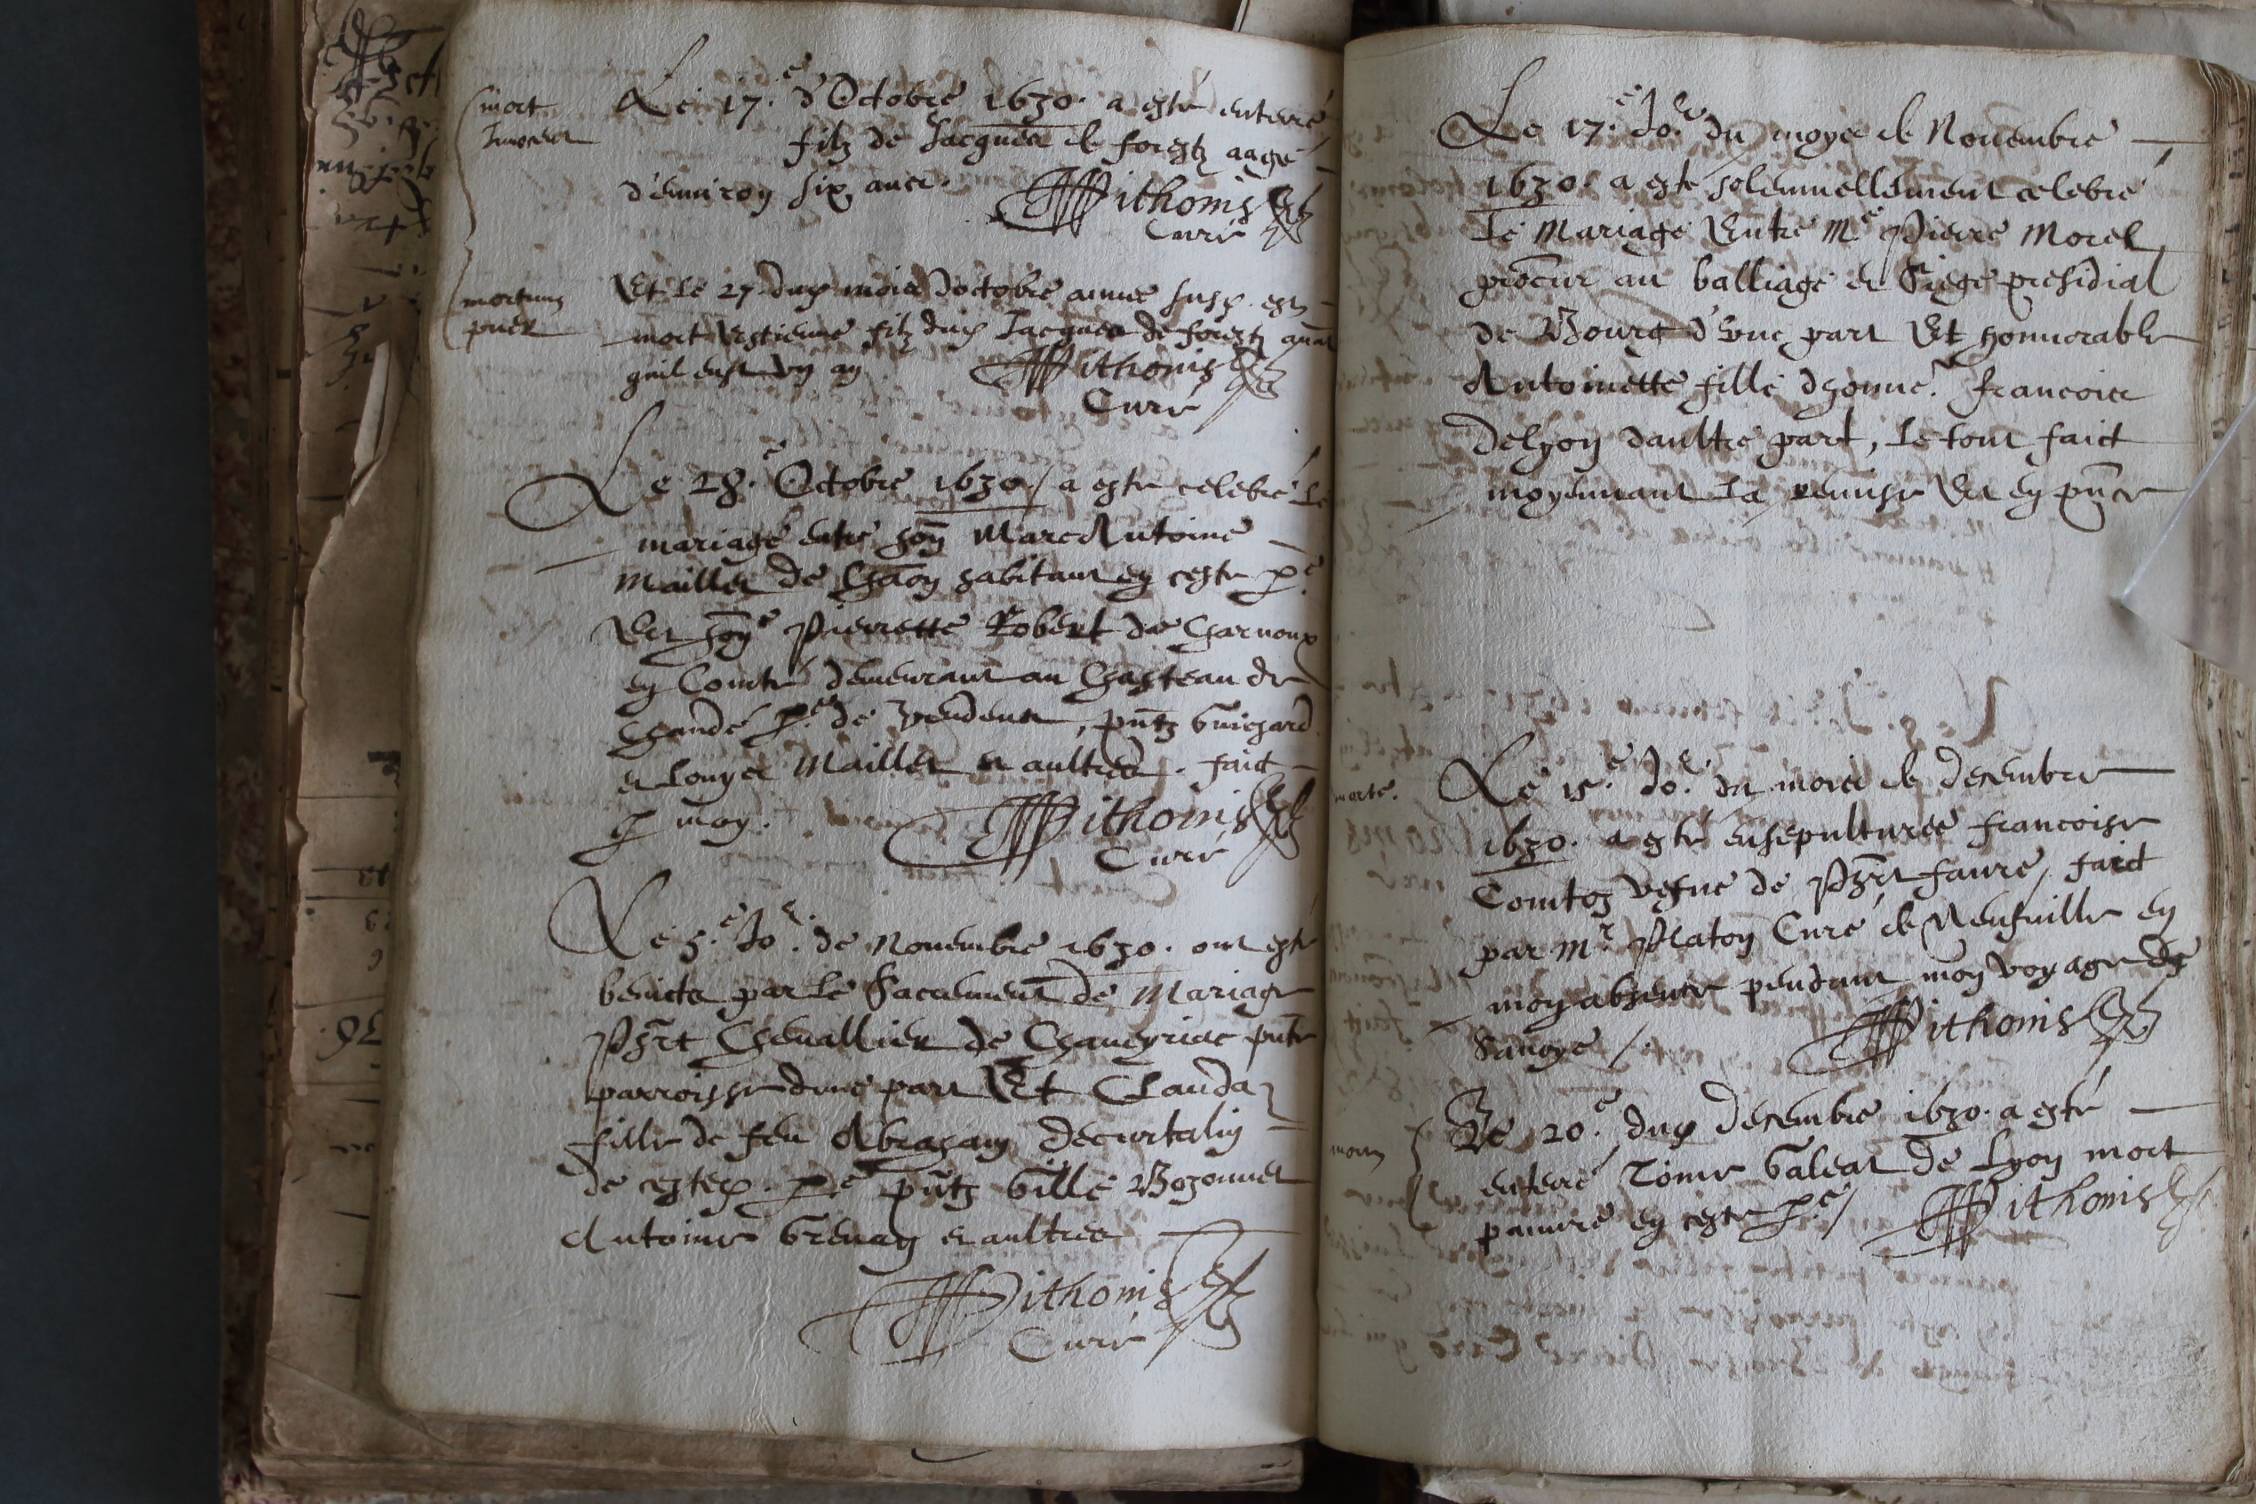 mort
Innocent
Le 17.e d'Octobre 1630. a esté enterré
filz de Jacques de forestz aagé
d'enuiron six ans.
Pithonis
Curé
mortuus
puer
Et le 27 dup mois doctobre annee susp. est
mort Estienne filz dup Jacques de forestz auant
quil eust un an
Pithonis
Curé
Le 28.e Octobre 1630 / a esté celebré le
mariage entre hon Marc Antoine
Maillet de habitant en ceste p.e
Et hon.e Pierrette Robert de Charnoux
en Comté demeurant au Chasteau de
p.e de , pntz Guichard
et Louys Maillet et aultres. faict
p moy.
Pithonis
Curé
Le 5.e Jo.r de Nouembre 1630. ont esté
benicts par le Sacrement de Mariage
Phrt Cheuallier de Chaueyriac pnte
parroisse dune part Et Clauda
fille de feu Abraham Decurtalin
de cestep. p.e pntz Gille Bozonnet
Antoine Grenay et aultres
Pithonis
Curé
Le 17.e Jo.r du moys de Nouembre
1630. a esté solemnellement celebré
le Mariage Entre Me Pierre Morel
procur au balliage et Siege presidial
de Bourg d'vne part Et honnorable
Antoinette fille dhonne.r francois
Delyon daultre part, le tout faict
moyennant la remise Et en pnce
morte.
Le 15.e Jo.r du mois de decembre
1630. a esté ensepulturée francoise
Comtoz vefue de Phrt faure, faict
par Mr Platon Curé de Neufuille en
moy absence pendant mon voyage de
Sauoye /.
Pithonis
mors
Le 20.e dup decembre 1630. a esté
enterré Galeat de Lyon mort
pauure en ceste p.e /
Pithonis